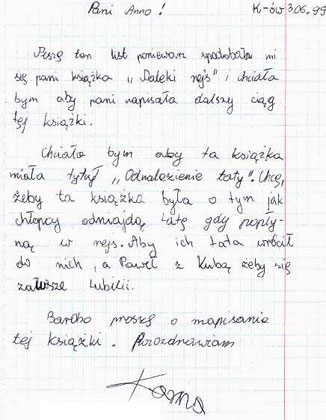 Pani Anno! K-ów 3.06.99
Piszę ten list ponieważ spodobała mi
się pani książka „Daleki rejs" i chciała
bym aby pani napisała dalszy ciąg
tej książki.
Chciała bym aby ta książka
miała tytuł „Odnalezienie taty". Chcę,
żeby ta książka była o tym jak
chłopcy odnajdą tatę gdy popły-
ną w rejs. Aby ich tata wrócił
do nich, a Paweł z Kubą żeby się
zawsze lubili.
Bardo proszę o napisanie
tej książki. Pozozdrawiam